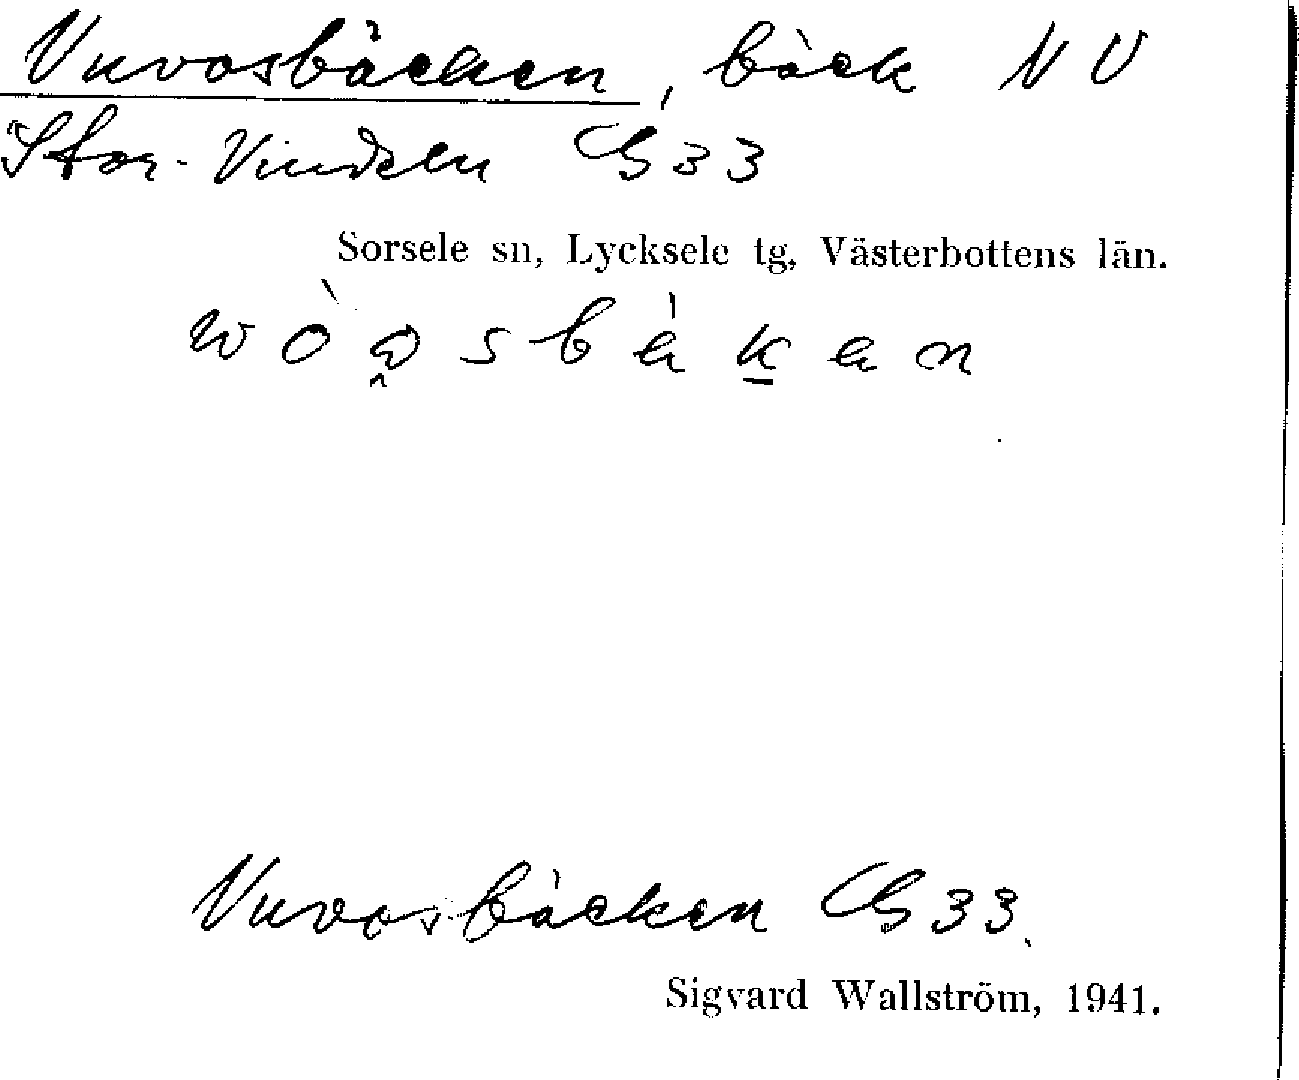 Vuvosbäcken, bäck NV
Stor-Vindeln GS 33
Sorsele sn, Lycksele tg, Västerbottens län.
Vuvosbäcken GS 33.
Sigvard Wallström, 1941.